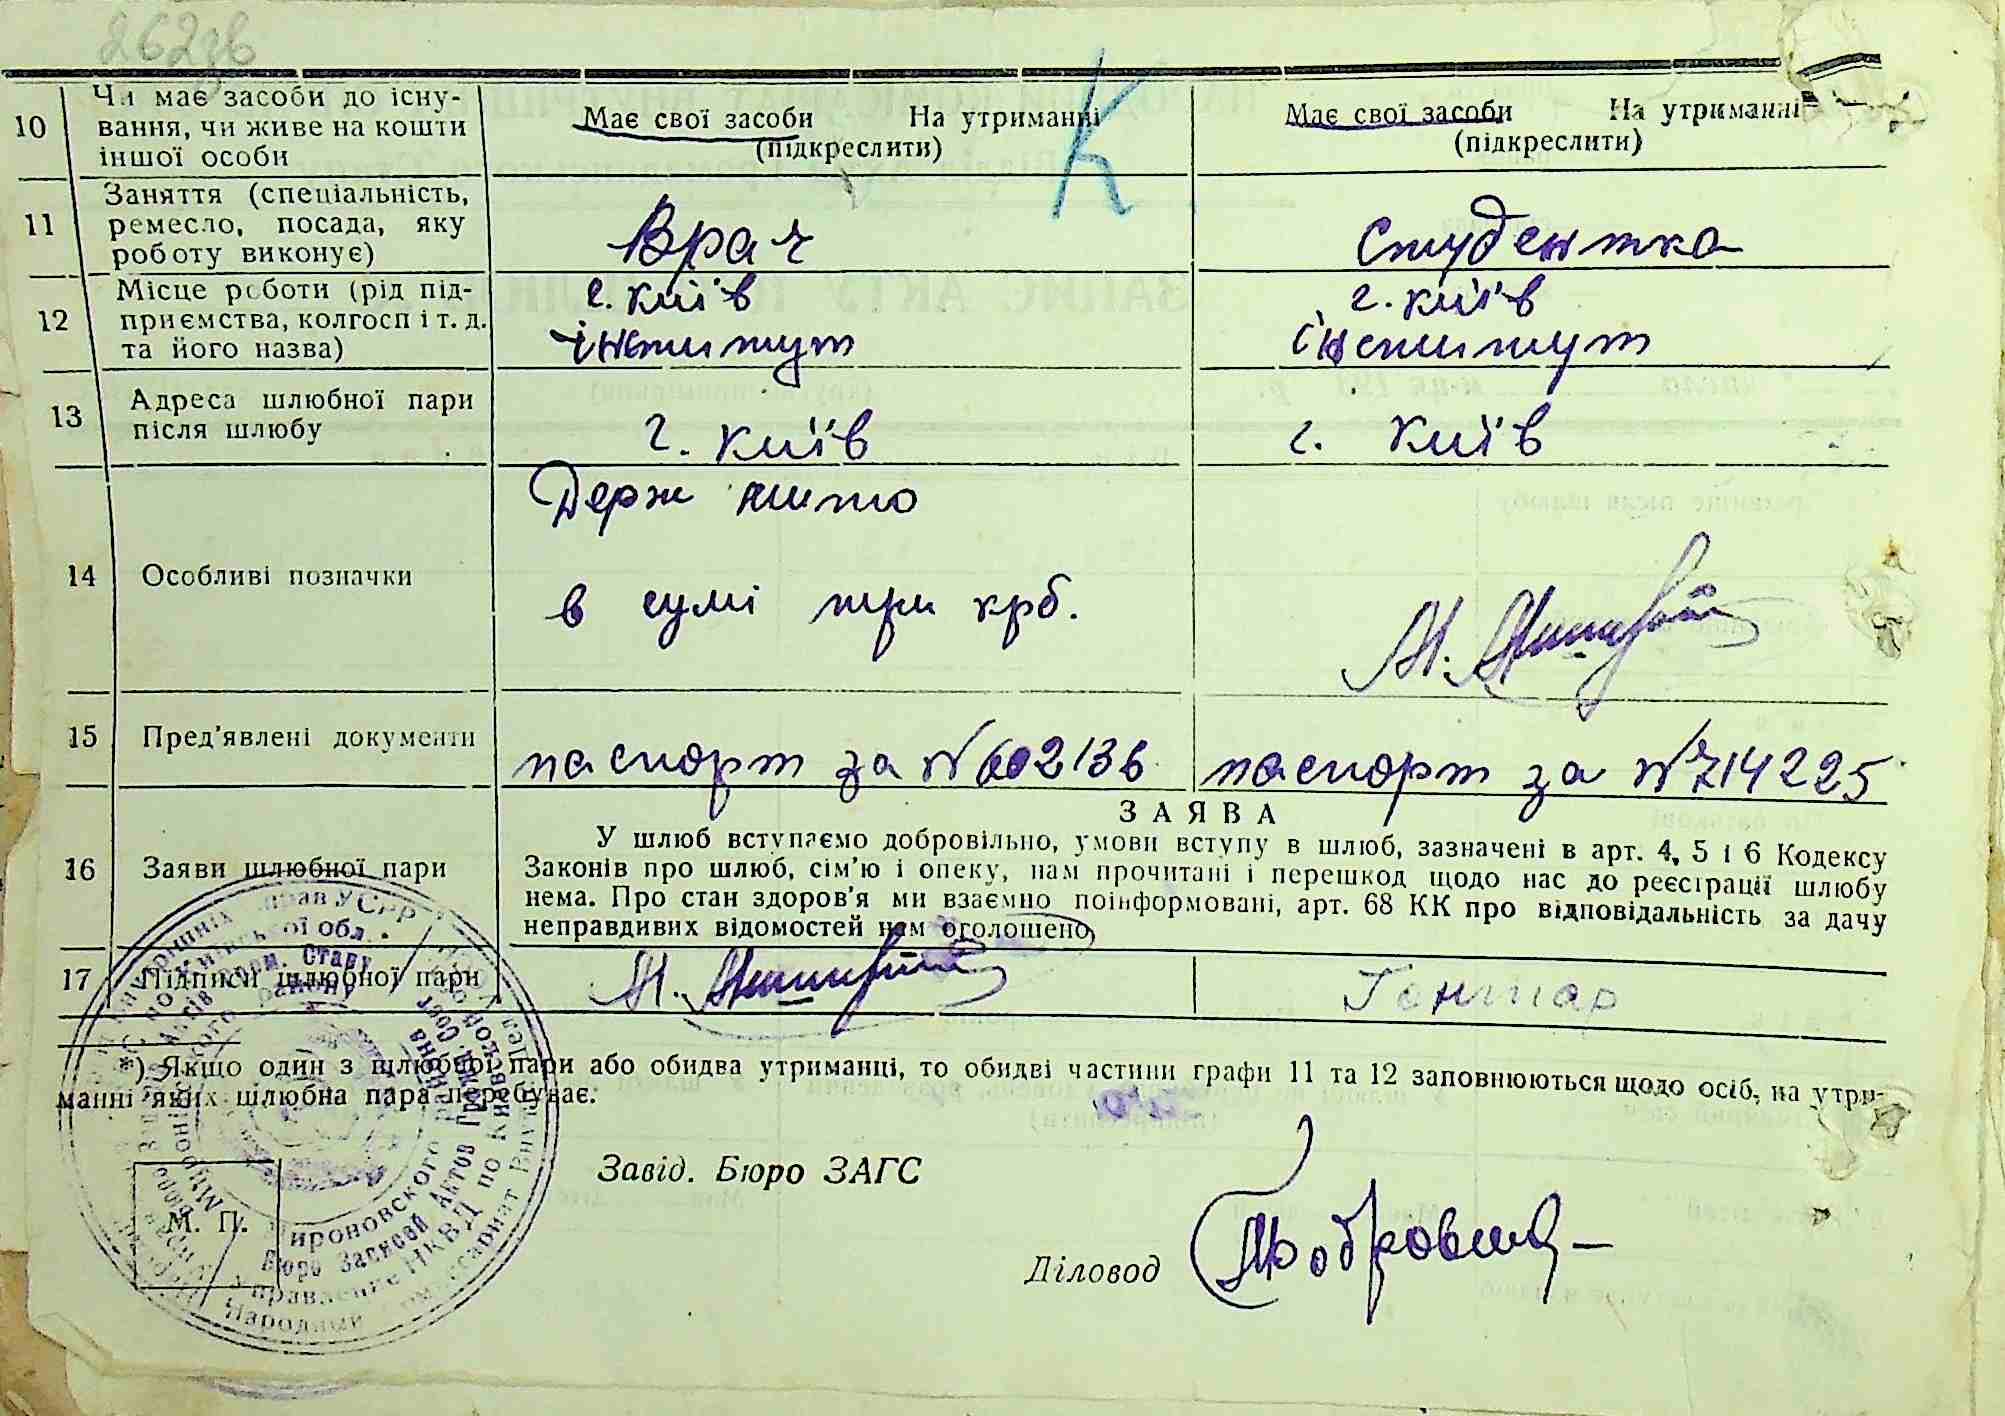 262зв
10 Чи має засоби до існу-
вання, чи живе на кошти
іншої особи
Має свої засоби На утриманні
(підкреслити)
Має свої засоби На утриманні
(підкреслити)
К
11 Заняття (спеціальність,
ремесло, посада, яку
роботу виконує)
Врач
Студентка
12 Місце роботи (рід під-
приємства, колгосп і т. д.
та його назва)
г. Київ
інститут
г. Київ
інститут
13 Адреса шлюбної пари
після шлюбу
г. Київ
г. Київ
14 Особливі позначки
Держ мито
в сумі три крб.
15 Пред'явлені документи
паспорт за № 602136
паспорт за № 714225
16 Заяви шлюбної пари
ЗАЯВА
У шлюб вступаємо добровільно, умови вступу в шлюб, зазначені в арт. 4, 5 і 6 Кодексу
Законів про шлюб, сім'ю і опеку, нам прочитані і перешкод щодо нас до реєстрації шлюбу
нема. Про стан здоров'я ми взаємно поінформовані, арт. 68 КК про відповідальність за дачу
неправдивих відомостей нам оголошено,
17 Підписи шлюбної пари
Гонтар
*) Якщо один з шлюбної пари або обидва утриманці, то обидві частини графи 11 та 12 заповнюються щодо осіб, на утри-
манні яких шлюбна пара перебуває.
Завід. Бюро ЗАГС
М. П.
Діловод
Мироновского
Бюро Записей Актов Гражд. Сост.
Управление НКВД по Киевской
Народный Комиссариат Внутр.